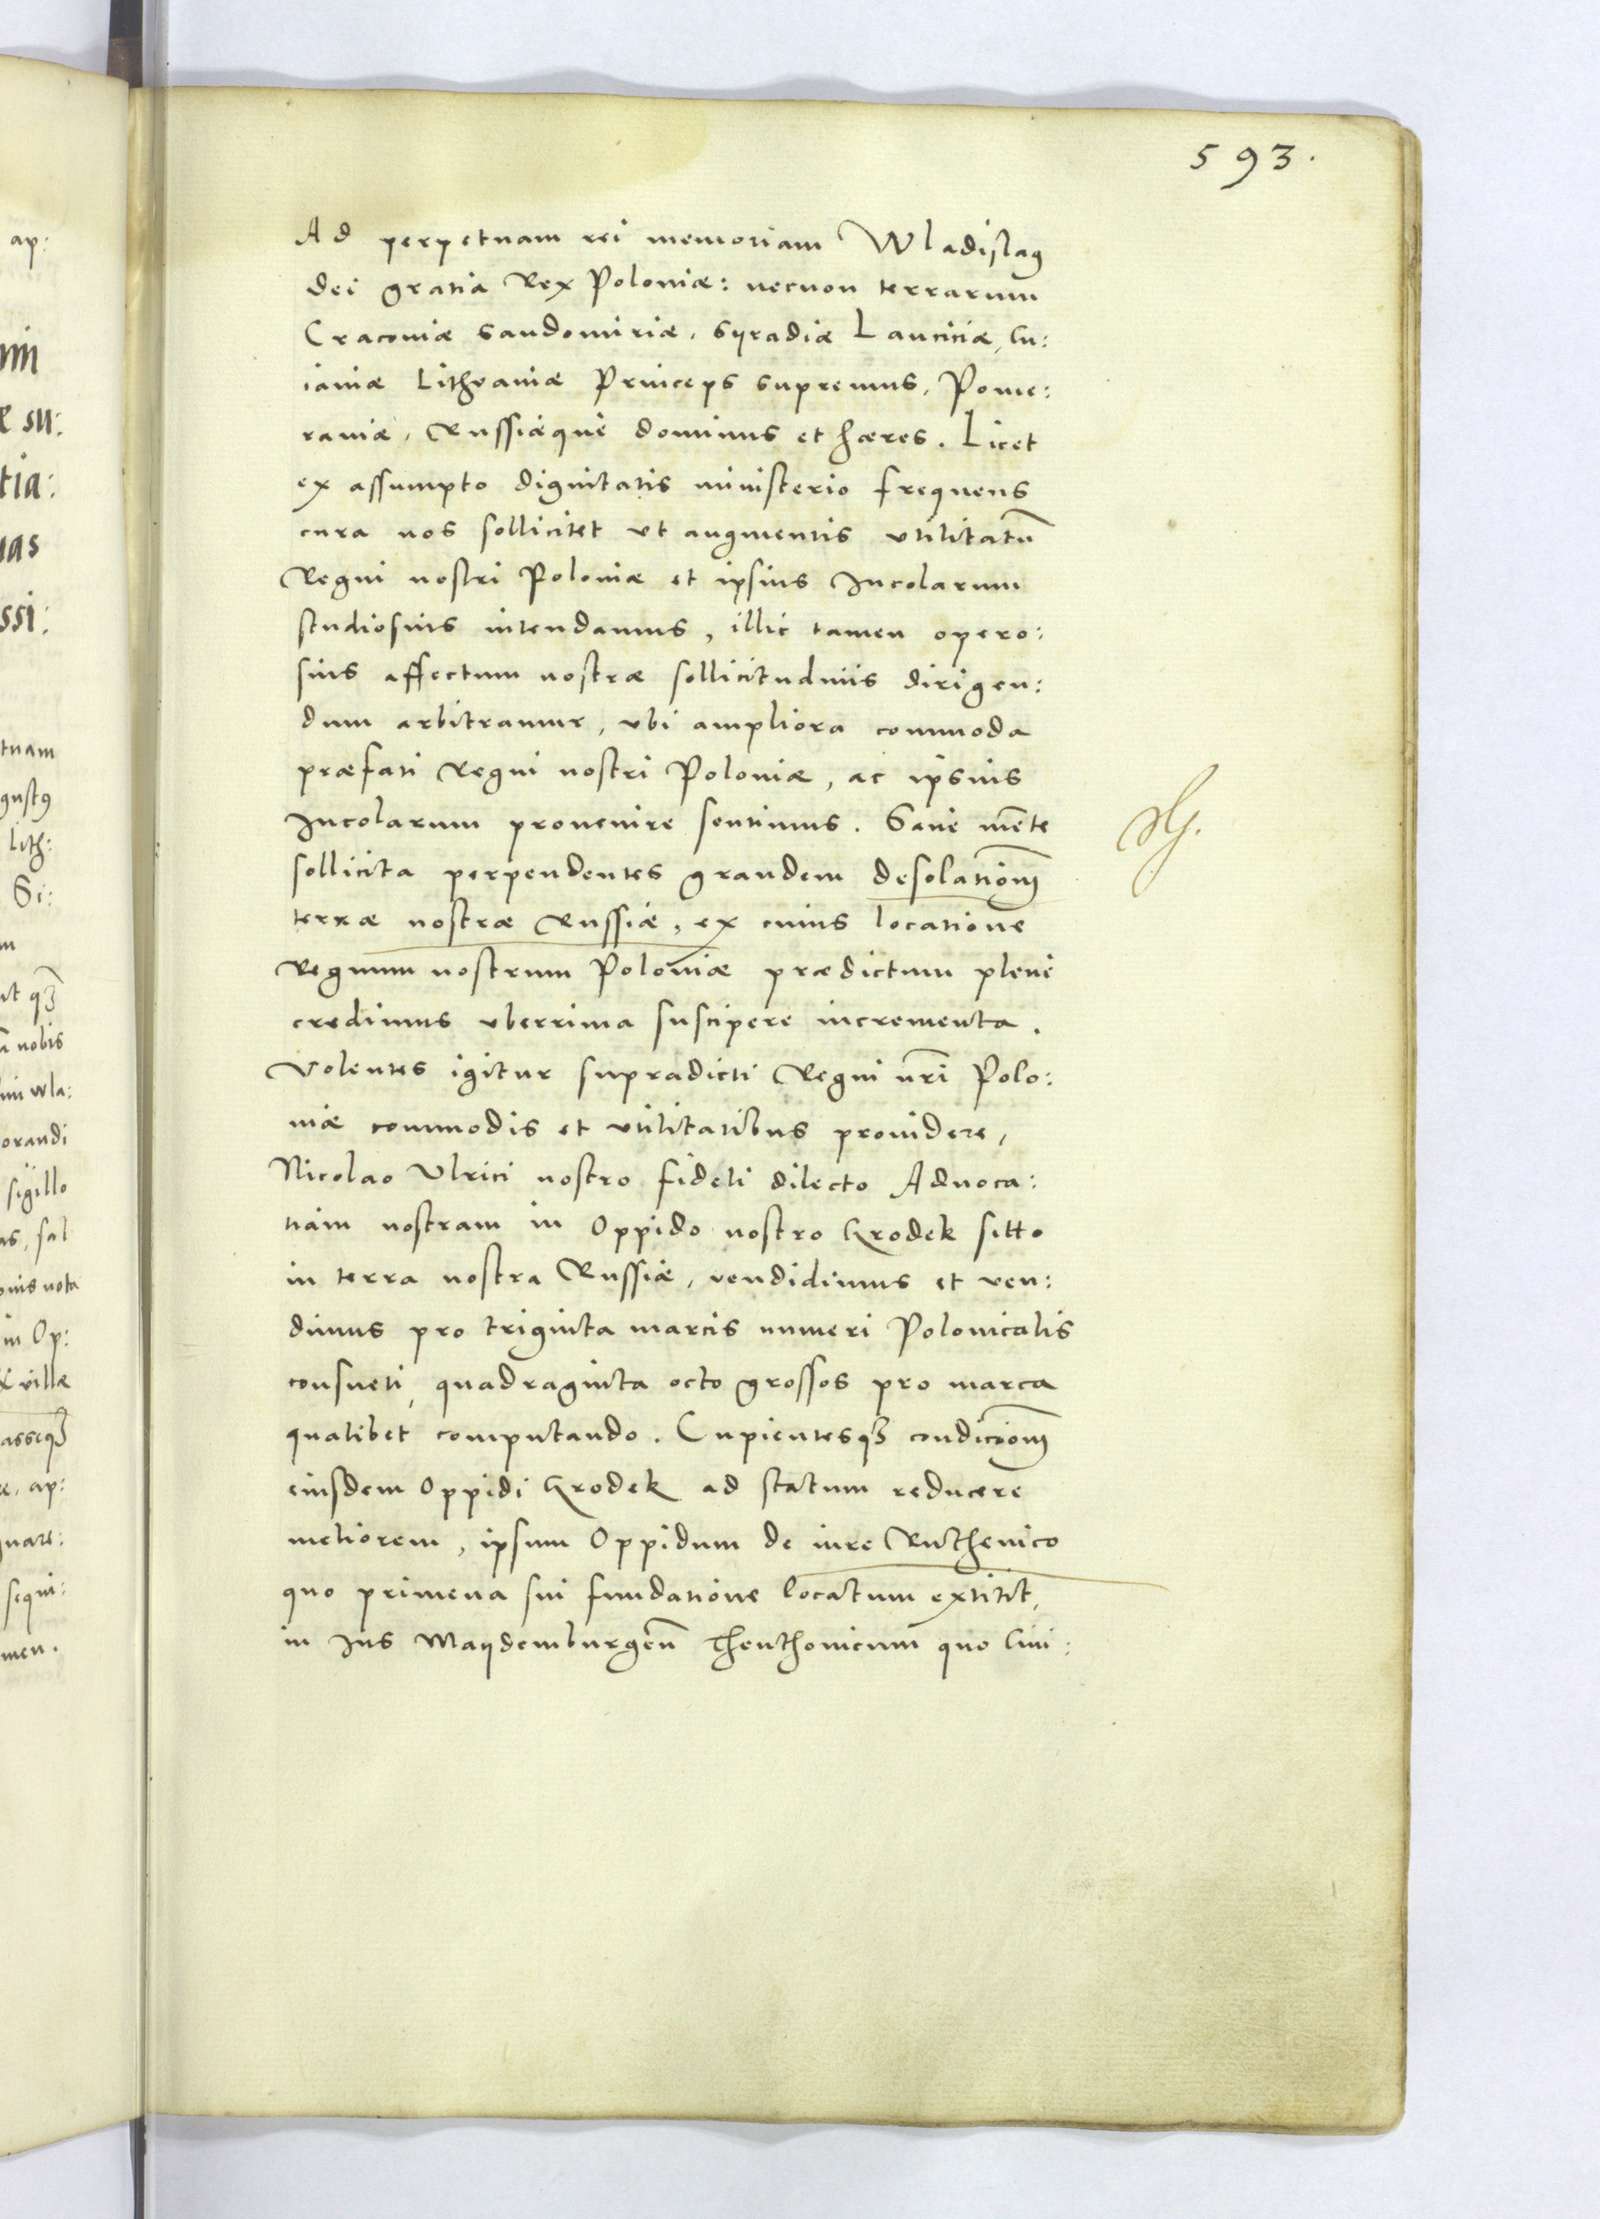 593.
Ad perpetuam rei memoriam Wladislaꝰ
dei gratia Rex Poloniæ: necnon terrarum
Cracoviæ Sandomiriæ, Syradiæ Lanciciæ, Cu:
iaviæ Lithvaniæ Princeps supremus, Pome:
raniæ, Russiæque dominus et hæres. Licet
ex assumpto dignitatis ministerio frequens
cura nos sollicitet ut augmentis utilitatū
Regni nostri Poloniæ et ipsius Incolarum
studiosius intendamus, illic tamen opero:
sius affectum nostræ sollicitudinis dirigen:
dum arbitramur, ubi ampliora commoda
præfati Regni nostri Poloniæ, ac ipsius
Incolarum provenire sentimus. Sane mēte
sollicita perpendentes grandem desolationē
terræ nostræ Russiæ, ex cuius locatione
Regnum nostrum Poloniæ prædictum plene
credimus uberrima suscipere incrementa.
Volentes igitur supradicti Regni nr̄i Polo:
niæ commodis et utilitatibus providere,
Nicolao Ulrici nostro fideli dilecto Advoca:
tiam nostram in Oppido nostro Grodek sitto
in terra nostra Russiæ, vendidimus et ven:
dimus pro triginta marcis numeri Polonicalis
consueti, quadraginta octo grossos pro marca
qualibet computando. Cupientesqꝫ condicionē
eiusdem Oppidi Grodek ad statum reducere
meliorem, ipsum Oppidum de iure Ruthenico
quo primeva sui fundatione locatum extitit,
in Ius Maydemburgeñ Theuthonicum quo Civi:
ap:
su:
tia:
uas
ssi:
tuam
gustꝰ
lith:
nobis
wla:
orandi
sigillo
nota
in Op:
villæ
asseqꝫ
ap:
sequi:
men.